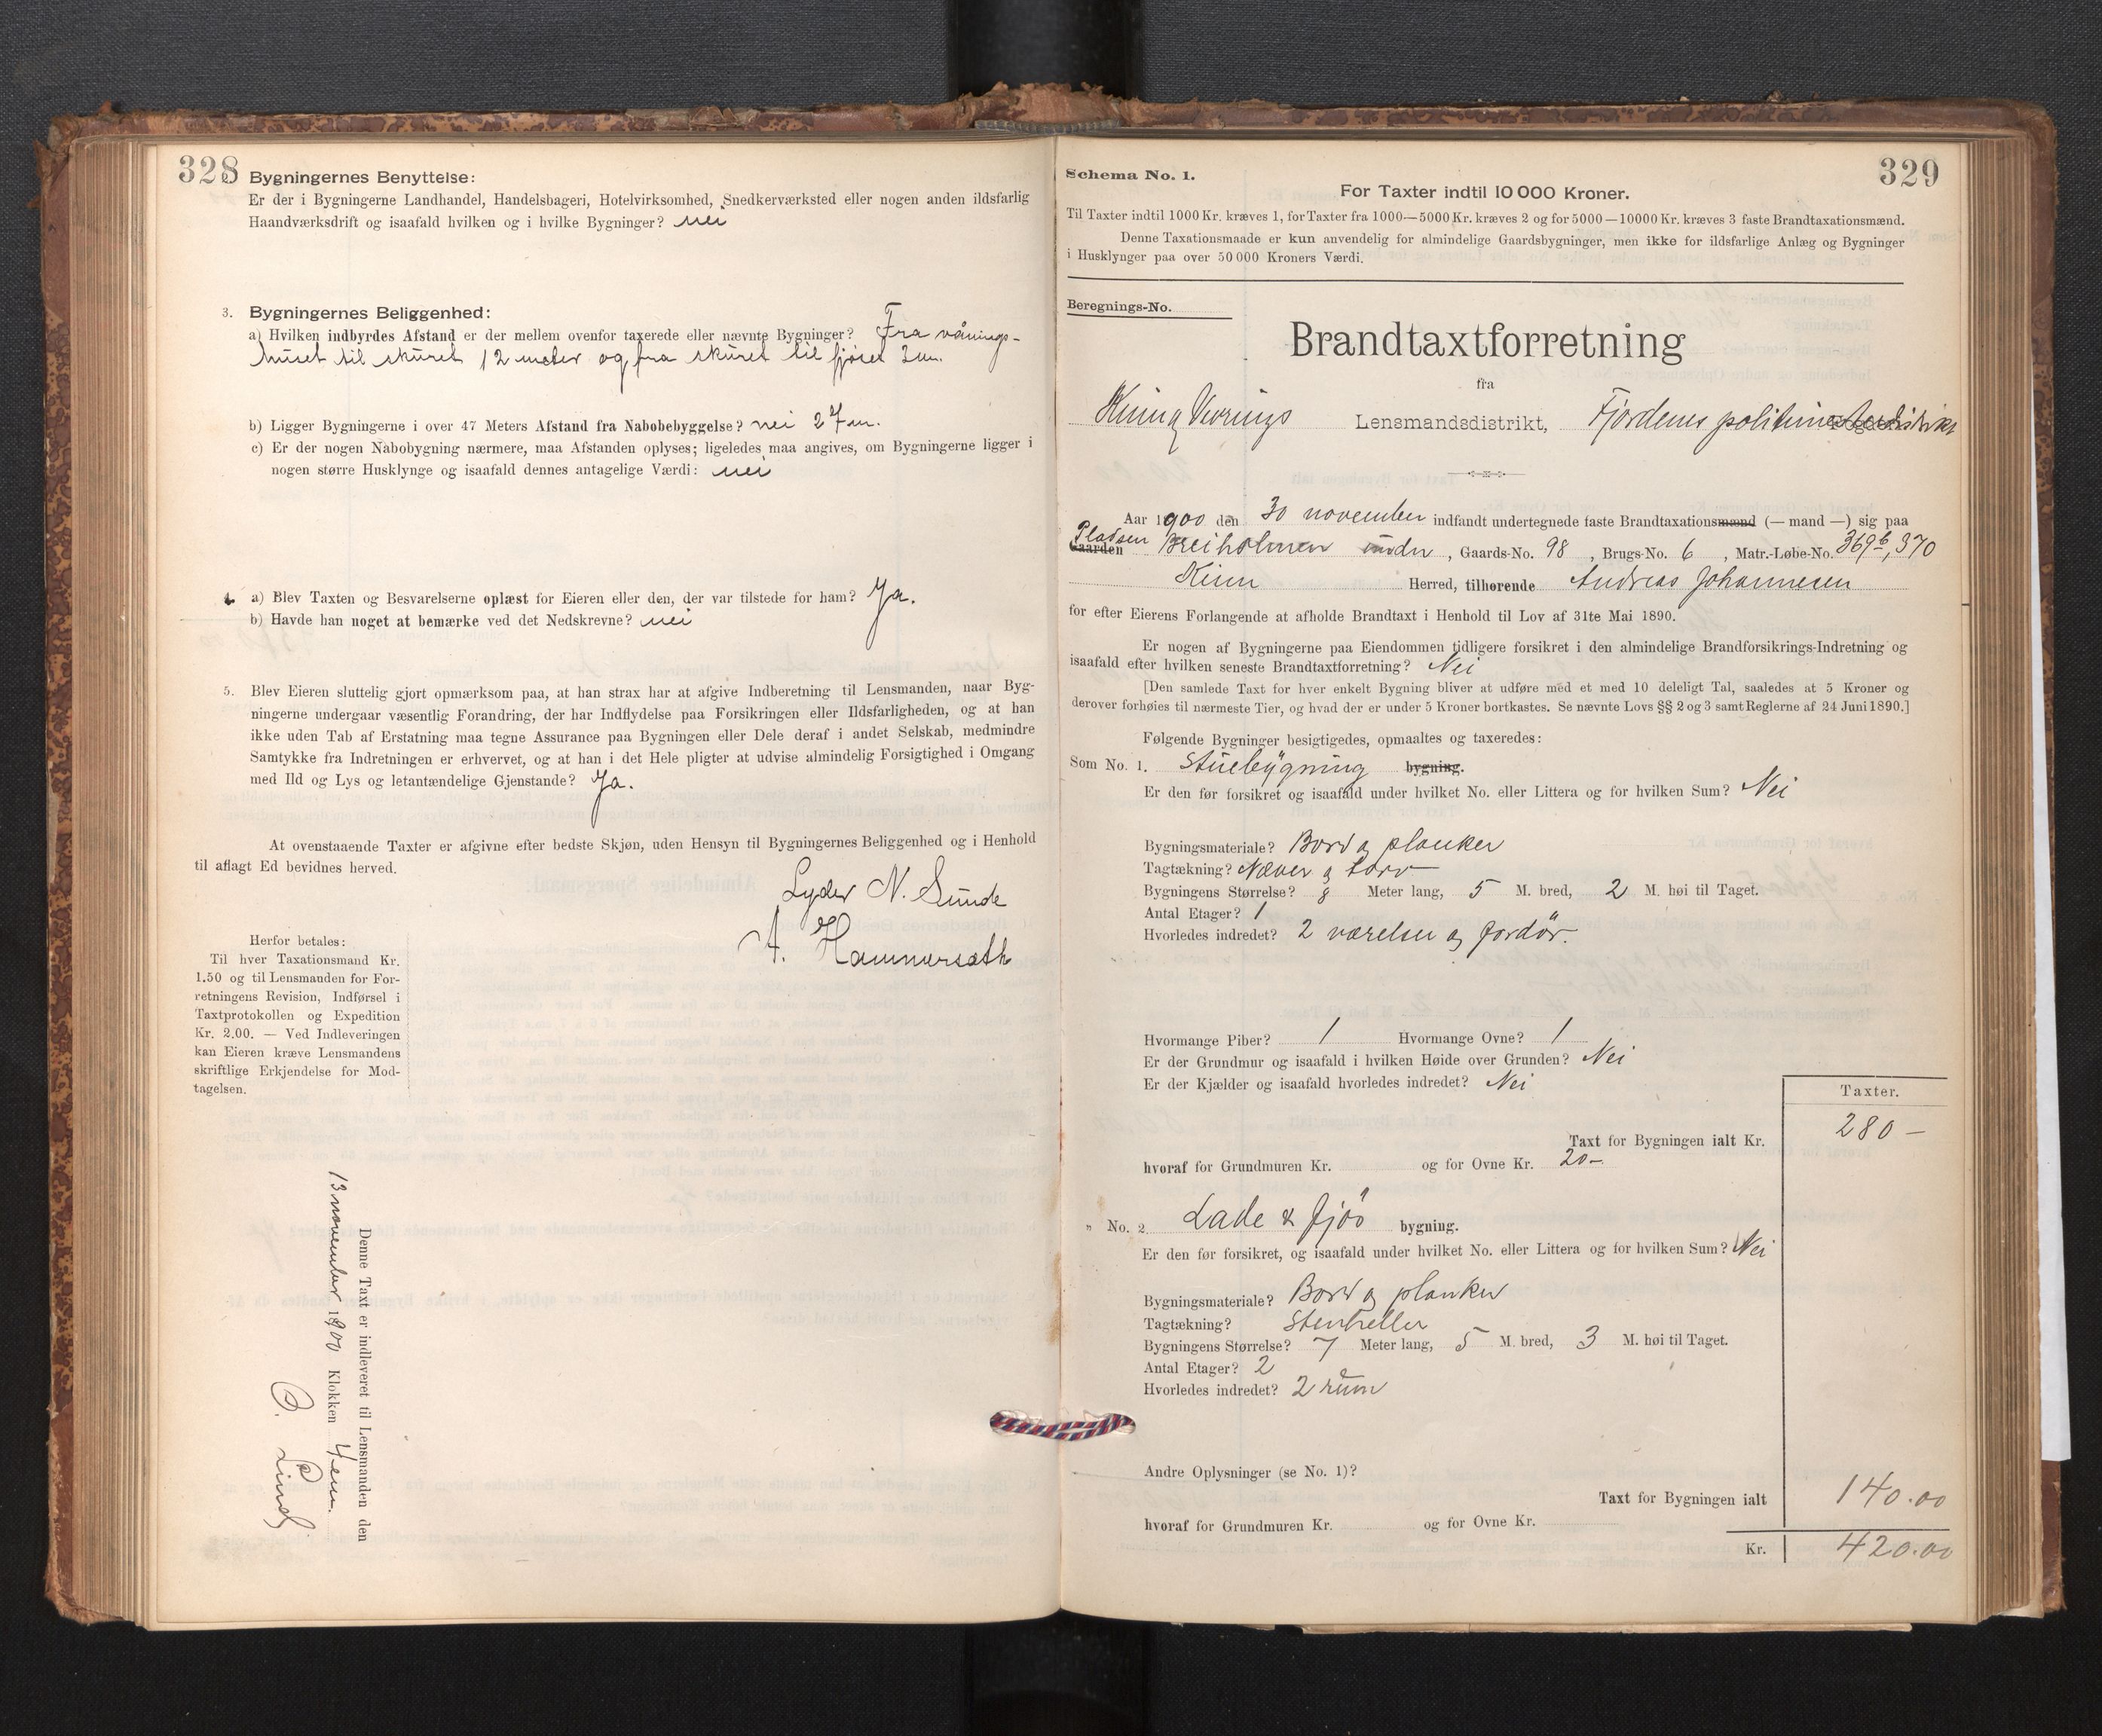 328
Bygningernes Benyttelse:
Er der i Bygningerne Landhandel, Handelsbageri, Hotelvirksomhed, Snedkerværksted eller nogen anden ildsfarlig
Haandværksdrift og isaafald hvilken og i hvilke Bygninger? nei
3. Bygningernes Beliggenhed:
a) Hvilken indbyrdes Afstand er der mellem ovenfor taxerede eller nævnte Bygninger? Fra vånings-
huset til skuret 12 meter og fra skuret til fjøset 3 m.
b) Ligger Bygningerne i over 47 Meters Afstand fra Nabobebyggelse? nei 27 m.
c) Er der nogen Nabobygning nærmere, maa Afstanden oplyses; ligeledes maa angives, om Bygningerne ligger i
nogen større Husklynge og isaafald dennes antagelige Værdi: nei
4. a) Blev Taxten og Besvarelserne oplæst for Eieren eller den, der var tilstede for ham? Ja.
b) Havde han noget at bemærke ved det Nedskrevne? nei
5. Blev Eieren sluttelig gjort opmærksom paa, at han strax har at afgive Indberetning til Lensmanden, naar Byg-
ningerne undergaar væsentlig Forandring, der har Indflydelse paa Forsikringen eller Ildsfarligheden, og at han
ikke uden Tab af Erstatning maa tegne Assurance paa Bygningen eller Dele deraf i andet Selskab, medmindre
Samtykke fra Indretningen er erhvervet, og at han i det Hele pligter at udvise almindelig Forsigtighed i Omgang
med Ild og Lys og letantændelige Gjenstande? Ja.
At ovenstaaende Taxter er afgivne efter bedste Skjøn, uden Hensyn til Bygningernes Beliggenhed og i Henhold
til aflagt Ed bevidnes herved.
Lyder N. Sunde
A. Hammersæth
Herfor betales:
Til hver Taxationsmand Kr.
1.50 og til Lensmanden for For-
retningens Revision, Indførsel i
Taxtprotokollen og Expedition
Kr. 2.00. — Ved Indleveringen
kan Eieren kræve Lensmandens
skriftlige Erkjendelse for Mod-
tagelsen.
Denne Taxt er indleveret til Lensmanden den
13 november 1900 Klokken 4 em.
329
Schema No. 1.
For Taxter indtil 10 000 Kroner.
Til Taxter indtil 1000 Kr. kræves 1, for Taxter fra 1000—5000 Kr. kræves 2 og for 5000—10000 Kr. kræves 3 faste Brandtaxationsmænd.
Denne Taxationsmaade er kun anvendelig for almindelige Gaardsbygninger, men ikke for ildsfarlige Anlæg og Bygninger
i Husklynger paa over 50 000 Kroners Værdi.
Beregnings-No.
Brandtaxtforretning
fra
Kinn og Vevrings Lensmandsdistrikt, Fjordenes politimesterdistrikt
Aar 1900 den 30 november indfandt undertegnede faste Brandtaxationsmænd (— mand —) sig paa
Pladsen
Gaarden Breiholmen under, Gaards-No. 98, Brugs-No. 6, Matr.-Løbe-No. 369b, 370
Kinn Herred, tilhørende Andreas Johannesen
for efter Eierens Forlangende at afholde Brandtaxt i Henhold til Lov af 31te Mai 1890.
Er nogen af Bygningerne paa Eiendommen tidligere forsikret i den almindelige Brandforsikrings-Indretning og
isaafald efter hvilken seneste Brandtaxtforretning? Nei
[Den samlede Taxt for hver enkelt Bygning bliver at udføre med et med 10 deleligt Tal, saaledes at 5 Kroner og
derover forhøies til nærmeste Tier, og hvad der er under 5 Kroner bortkastes. Se nævnte Lovs §§ 2 og 3 samt Reglerne af 24 Juni 1890.]
Følgende Bygninger besigtigedes, opmaaltes og taxeredes:
Som No. 1. Stuebygning bygning.
Er den før forsikret og isaafald under hvilket No. eller Littera og for hvilken Sum? Nei
Bygningsmateriale? Bord og planker
Tagtækning? Næver og torv
Bygningens Størrelse? 8 Meter lang, 5 M. bred, 2 M. høi til Taget.
Antal Etager? 1
Hvorledes indredet? 2 værelser og fordør.
Hvormange Piber? 1 Hvormange Ovne? 1
Er der Grundmur og isaafald i hvilken Høide over Grunden? Nei
Er der Kjælder og isaafald hvorledes indredet? Nei
Taxter.
Taxt for Bygningen ialt Kr. 280 —
hvoraf for Grundmuren Kr. og for Ovne Kr. 20 —
" No. 2. Lade & fjøs bygning.
Er den før forsikret, og isaafald under hvilket No. eller Littera og for hvilken Sum? Nei
Bygningsmateriale? Bord og planker
Tagtækning? Stenheller
Bygningens Størrelse? 7 Meter lang, 5 M. bred, 3 M. høi til Taget.
Antal Etager? 2
Hvorledes indredet? 2 rum
Andre Oplysninger (se No. 1)?
Taxt for Bygningen ialt 140.00
hvoraf for Grundmuren Kr. og for Ovne Kr.
Kr. 420.00